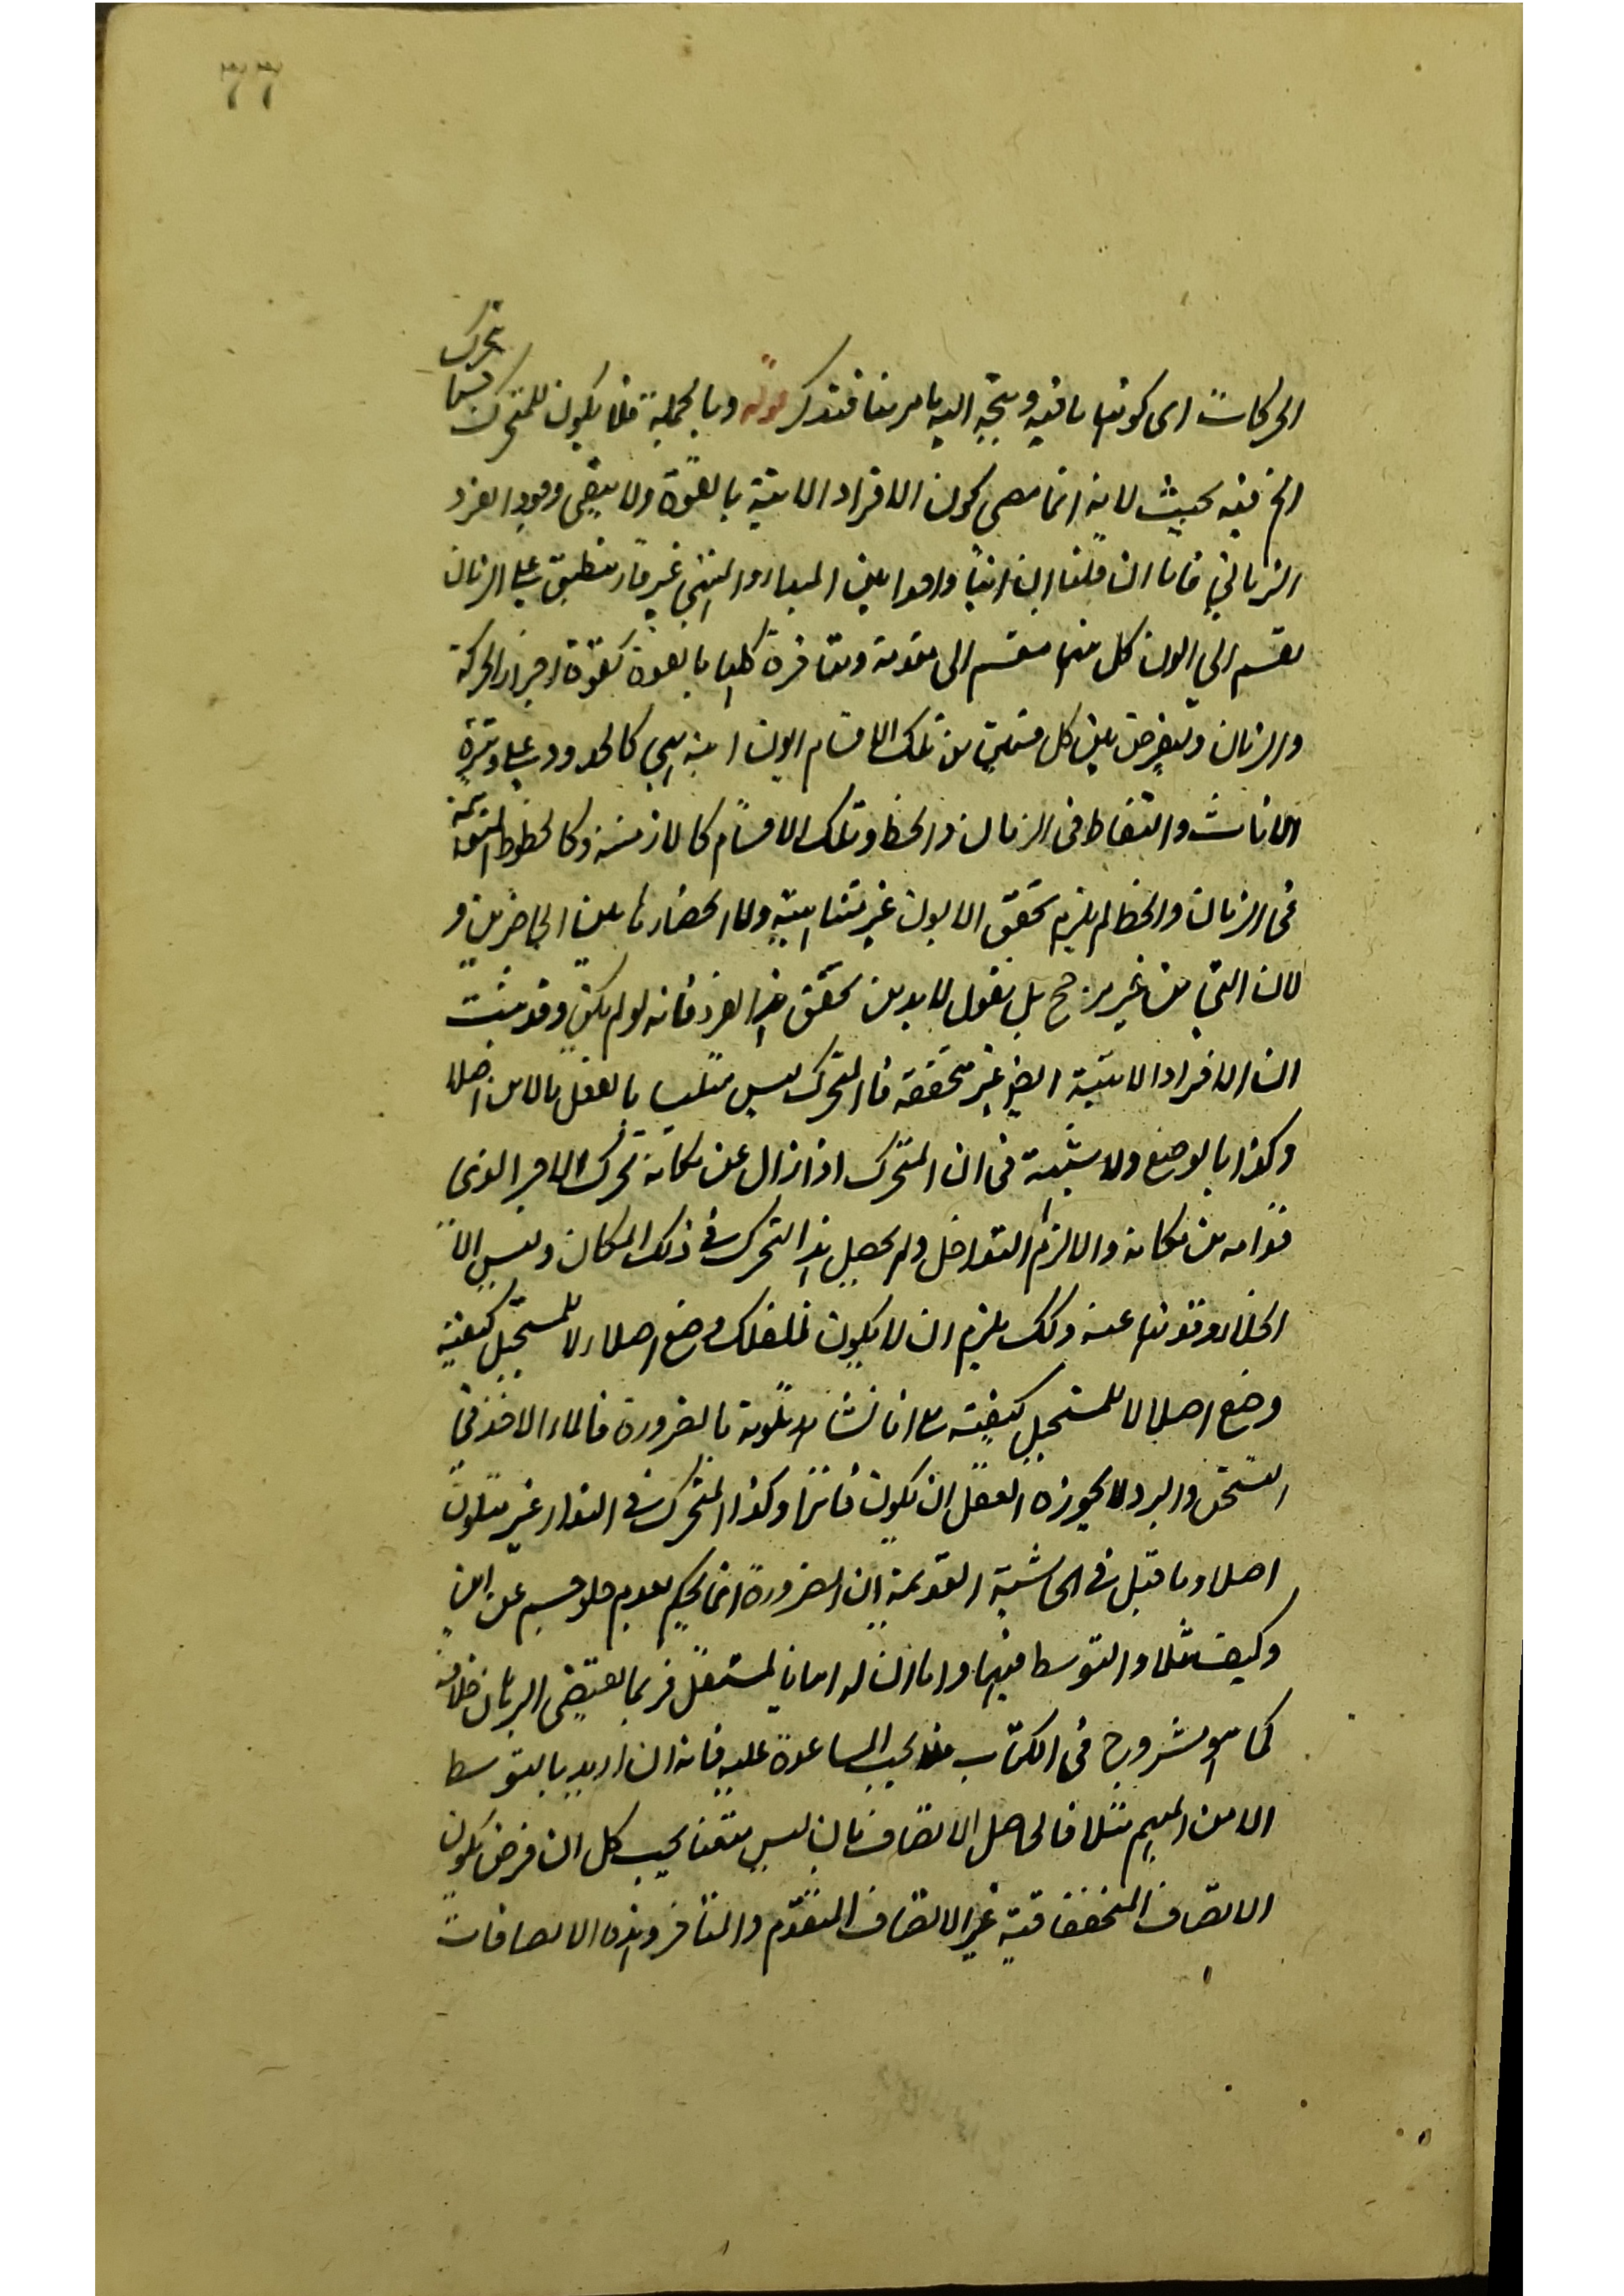 77
تحرك
الحركات اى كونها ما فيه ويتجه اليه ما مر منا فتذكر قوله وبالجملة فلا يكون للمتحرك فيما
الخ فيه بحيث لانه انما هى كون الافراد الانية بالقوة ولا ينفى وجود الفرد
الزمانى فاما ان قلنا ان اينا واحدا بين المبدء والمنتهى غير قار منطبق على الزمان
ينقسم الى ايون كل منها منقسم الى متقدمة ومتاخرة كلها بالقوة كقوة اجزاء الحركة
والزمان ويفرض بين كل قسمين من تلك الاقسام ايون انية هى كالحدود على وتيرة
الانات والنقاط فى الزمان والخط وتلك الاقسام كالازمنة وكالخطوط المتوهمة
فى الزمان والخط لم يلزم تحقق الايون غير متناهية ولا انحصارها بين الحاضرين و
لان التى من غير مرجح بل نقول لابد من تحقق هذا الفرد فانه لو لم يكن وقد ثبت
ان الافراد الانية ايضا غير متحققة فالمتحرك ليس متلبسا بالفعل بالاين اصلا
وكذا بالوضع ولا شبهة فى ان المتحرك اذا زال عن مكانه تحرك الاجزاء الذى
قدامه من مكانه والا لزم التداخل ولم يحصل هذا التحرك فى ذلك المكان وليس الا
الخلاء وقد نفاه عنه وكك يلزم ان لا يكون للفلك وضع اصلا ولا للمستحيل كيفية
وضع اصلا لا للمستحيل كيفية مع انا نشاهد تلونه بالضرورة فالماء الاخذ فى
التسخن والبرد لا يجوزه العقل ان يكون فاترا وكذا المتحرك فى السواد غير متلون
اصلا وما قيل فى الحاشية القديمة ان الضرورة انما يحكم بعدم خلو جسم عن اين
وكيف مثلا والتوسط فيهما واما ان له اينا بالفعل فربما يقتضى البرهان خلافه
كما هو مشروح فى الكتاب فلا يجب المساعدة عليه فانه ان اريد بالتوسط
الاين المبهم مثلا فالحاصل الاتصاف باين ليس متعينا بحيث كل ان فرض يكون
الاتصاف المتحقق فيه غير الاتصاف المتقدم والمتاخر وهذه الاتصافات